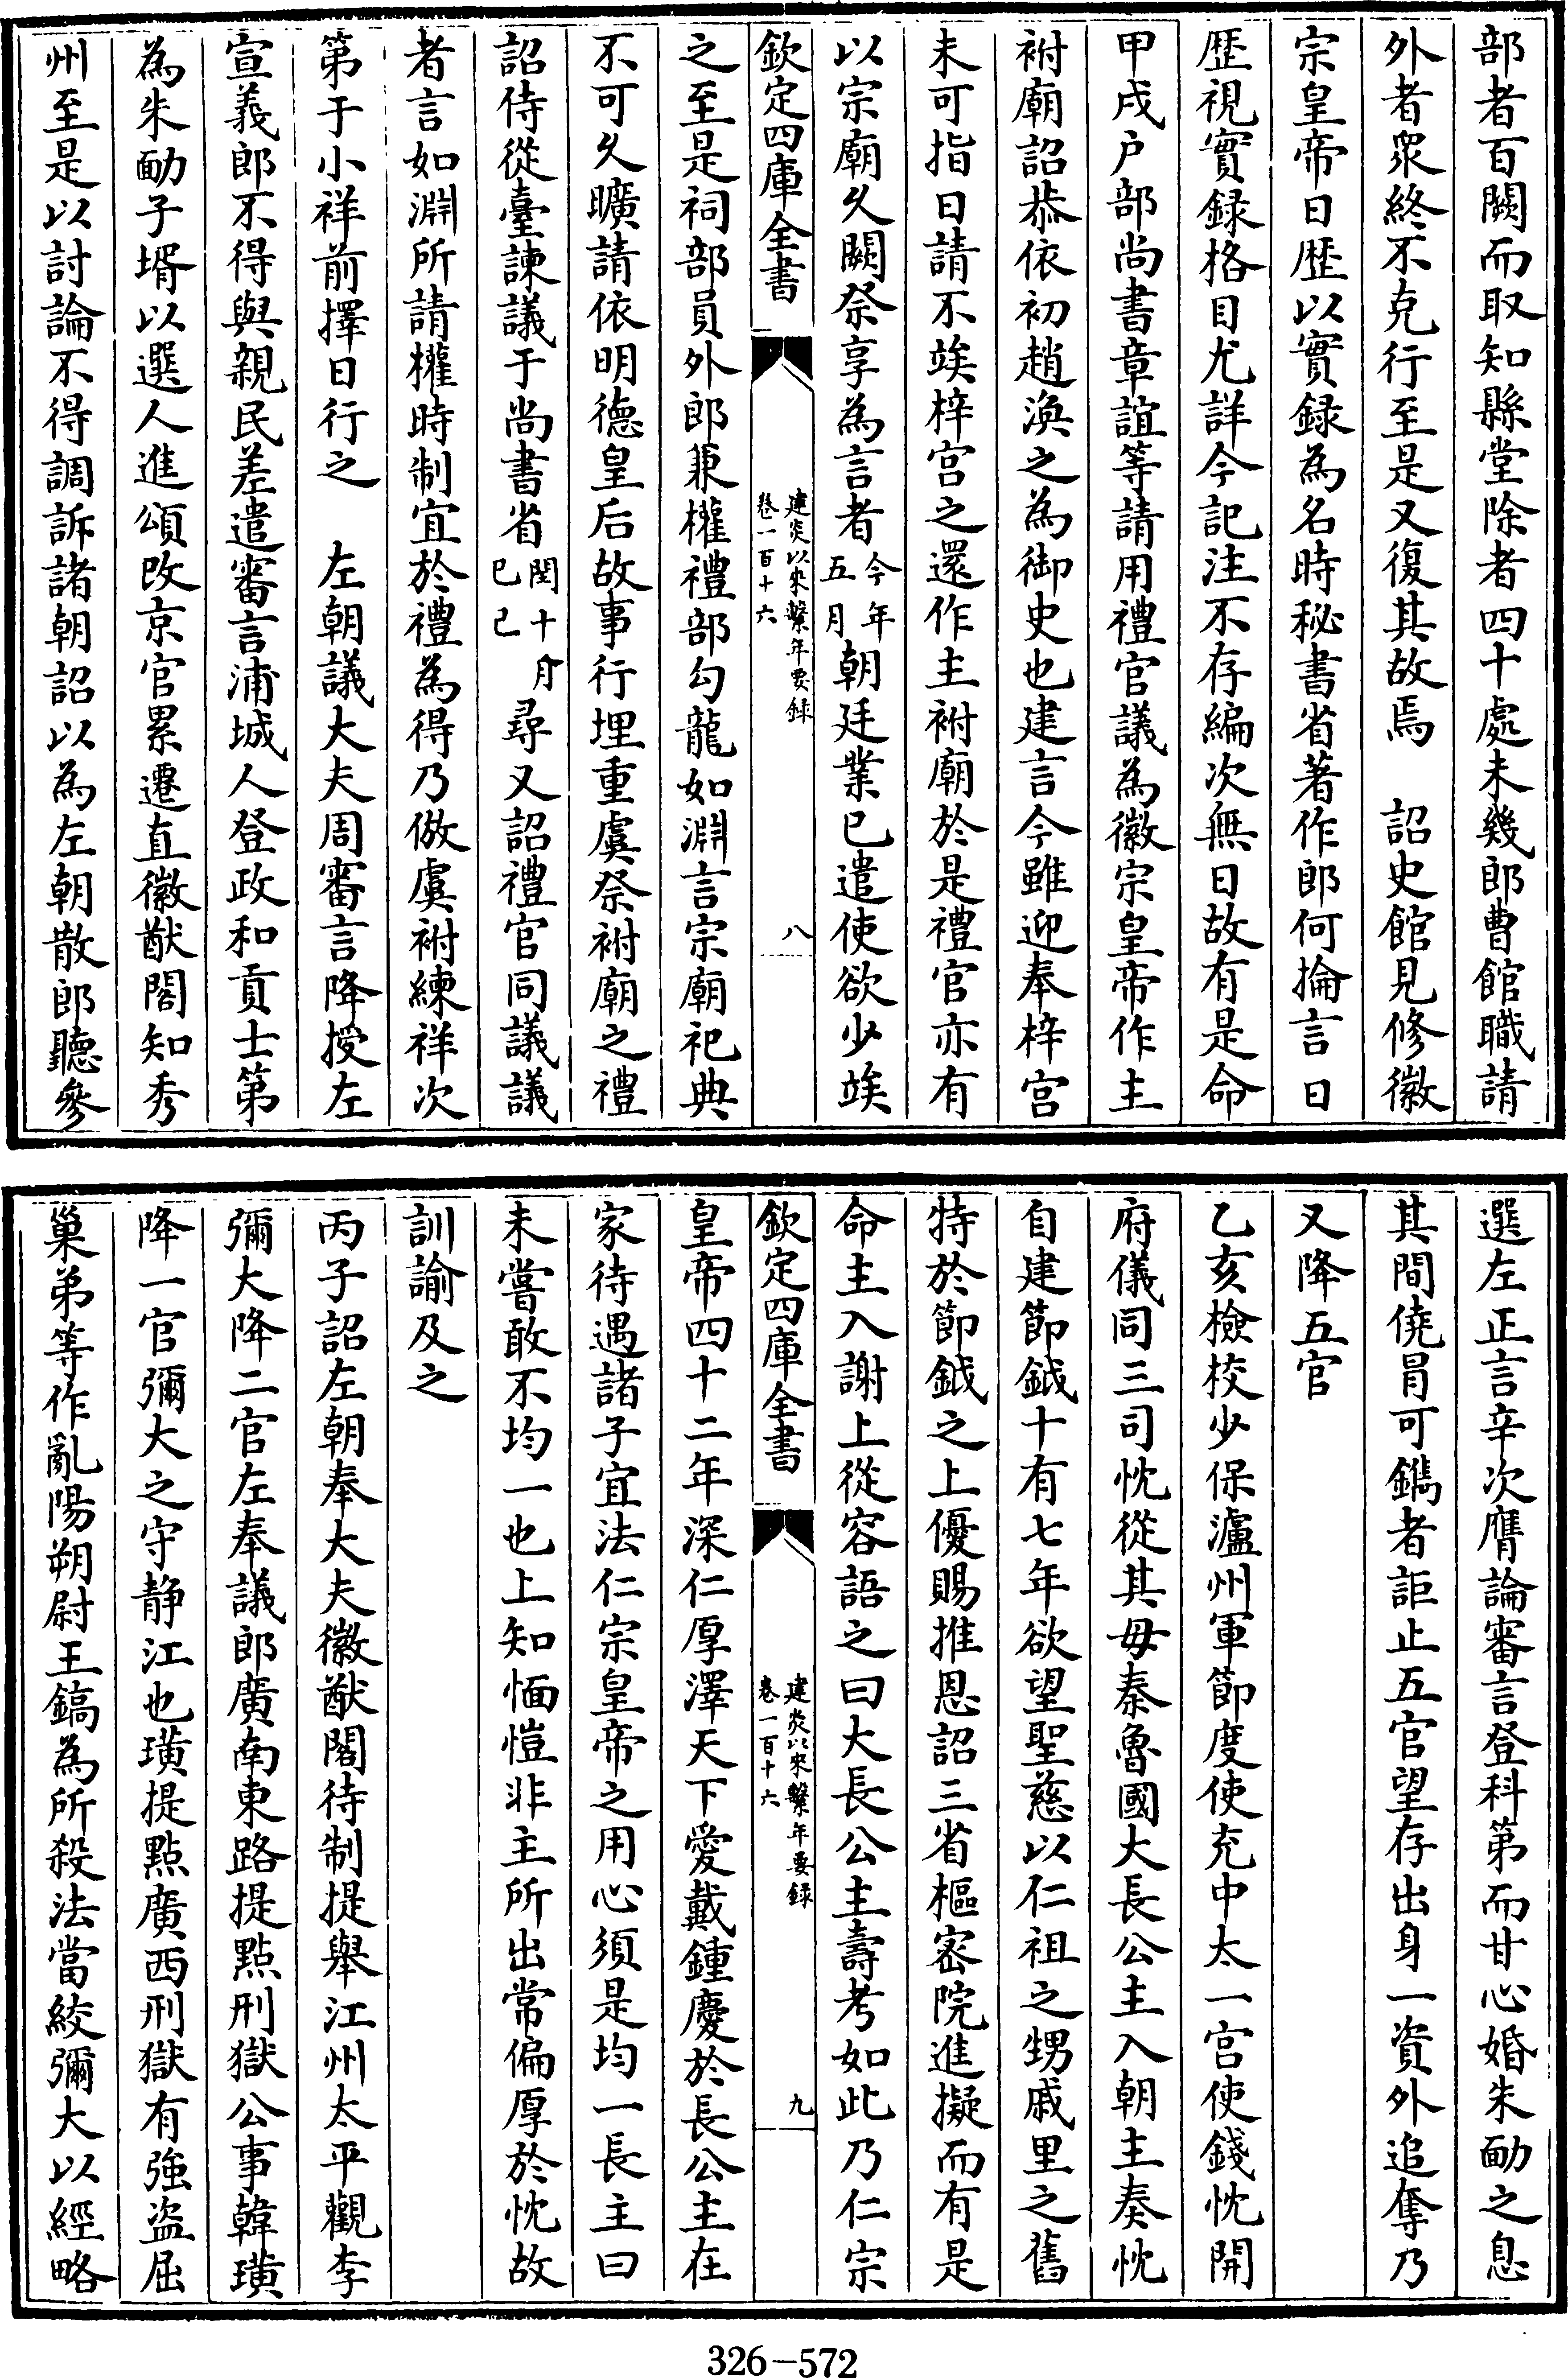 部者百闕而取知縣堂除者四十處未幾郎曹館職請
外者衆終不克行至是又復其故焉　詔史館見修徽
宗皇帝日歴以實録為名時秘書省著作郎何掄言日
歴視實録格目尤詳今記注不存編次無日故有是命
甲戌户部尚書章誼等請用禮官議為徽宗皇帝作主
祔廟詔恭依初趙渙之為御史也建言今雖迎奉梓宫
未可指日請不竢梓宫之還作主祔廟於是禮官亦有
以宗廟久闕祭享為言者今年五月朝廷業已遣使欲少竢
欽定四庫全書
建炎以來繫年要録
卷一百十六
八
之至是祠部員外郎兼權禮部勾龍如淵言宗廟祀典
不可久曠請依明德皇后故事行埋重虞祭祔廟之禮
詔侍從臺諫議于尚書省閏十月已己尋又詔禮官同議議
者言如淵所請權時制宜於禮為得乃倣虞祔練祥次
第于小祥前擇日行之　左朝議大夫周審言降授左
宣義郎不得與親民差遣審言浦城人登政和貢士第
為朱勔子壻以選人進頌改京官累遷直徽猷閣知秀
州至是以討論不得調訴諸朝詔以為左朝散郎聽參
選左正言辛次膺論審言登科第而甘心婚朱勔之息
其間僥冒可鐫者詎止五官望存出身一資外追奪乃
又降五官
乙亥檢校少保瀘州軍節度使充中太一宫使錢忱開
府儀同三司忱從其母秦魯國大長公主入朝主奏忱
自建節鉞十有七年欲望聖慈以仁祖之甥戚里之舊
特於節鉞之上優賜推恩詔三省樞密院進擬而有是
命主入謝上從容語之曰大長公主壽考如此乃仁宗
欽定四庫全書
建炎以來繫年要録
卷一百十六
九
皇帝四十二年深仁厚澤天下愛戴鍾慶於長公主在
家待遇諸子宜法仁宗皇帝之用心須是均一長主曰
未嘗敢不均一也上知愐愷非主所出常偏厚於忱故
訓諭及之
丙子詔左朝奉大夫徽猷閣待制提舉江州太平觀李
彌大降二官左奉議郎廣南東路提點刑獄公事韓璜
降一官彌大之守静江也璜提點廣西刑獄有強盗屈
巢弟等作亂陽朔尉王鎬為所殺法當絞彌大以經略
326-572